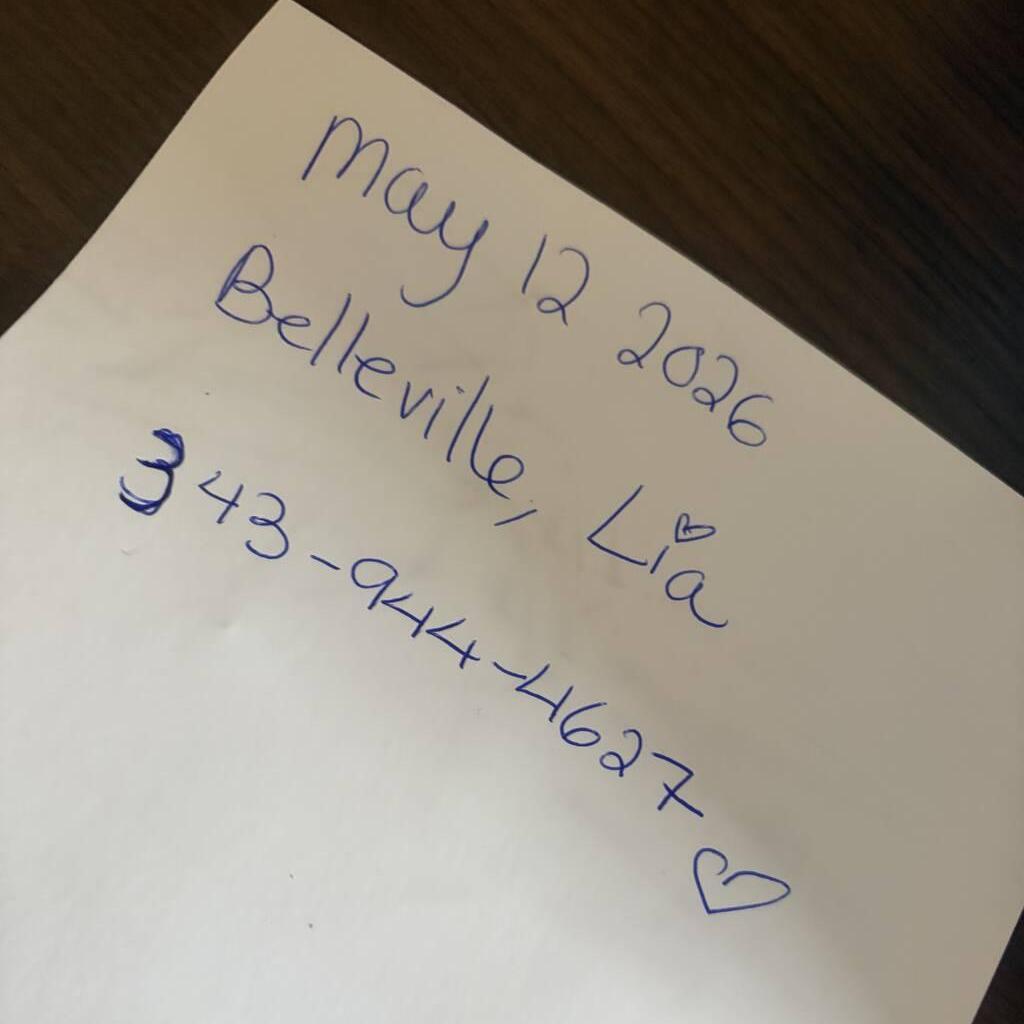 May 12 2026
Belleville, Lia
343-944-4627♡